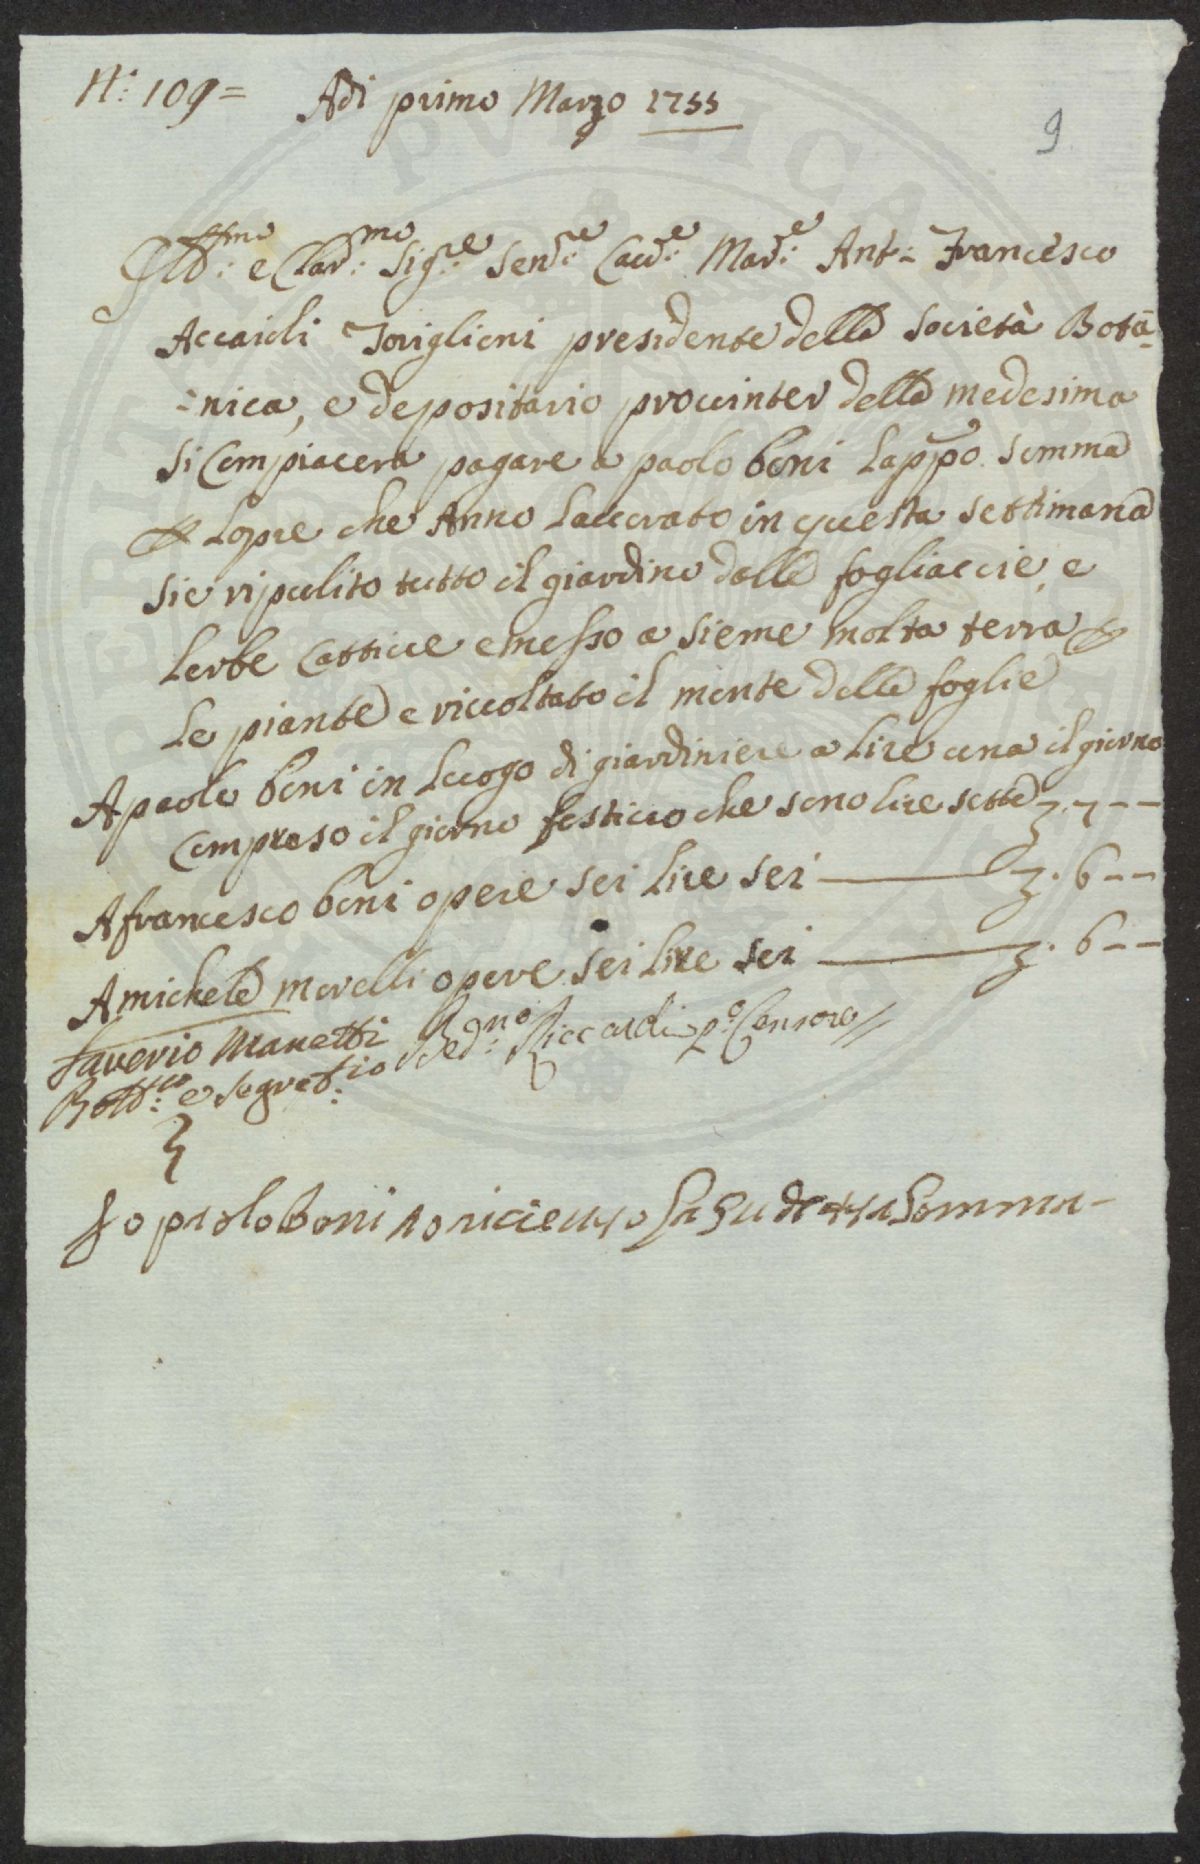 N.° 109= Adi primo Marzo 1755
9
Ill:mo e Clar:mo Sig:re Sen:re Cav:re Mar:e Ant:° Francesco
Accaioli Toriglioni presidente della Società Bota=
=nica, e depositario provinter della medesima
si Compiacera pagare a paolo boni Lapp.o somma
p Lopre che Anno Lavorato in questa settimana
sie ripulito tutto il giardino dalle fogliaccie, e
lerbe Cattive emesso a sieme molta terra p
le piante e riccoltato il monte delle foglie
A paolo boni in luogo di giardiniere a lire una il giorno
Compreso il giorno festivo che sono lire sette £. 7 - -
A francesco boni opere sei lire sei £. 6 - -
A michele morelli opere sei lire sei £. 6 - -
Saverio Manetti
Bott:co e Segret:io Bed:no Riccardi p.o Censore //
Io paolo boni ho riceuto la su detta somma -
PVBLICAE